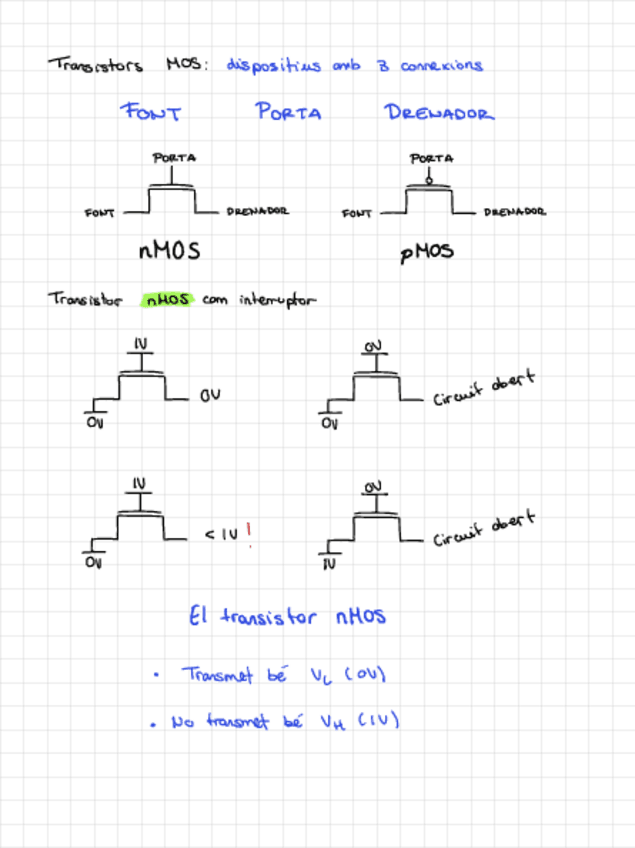 Transistors MOS: dispositius amb 3 connexions
FONT PORTA DRENADOR
PORTA PORTA
FONT DRENADOR FONT DRENADOR
nMOS pMOS
Transistor nMOS com interruptor
1V 0V
0V Circuit obert
0V 0V
1V 0V
< 1V! Circuit obert
0V 1V
El transistor nMOS
• Transmet bé VL (0V)
• No transmet bé VH (1V)